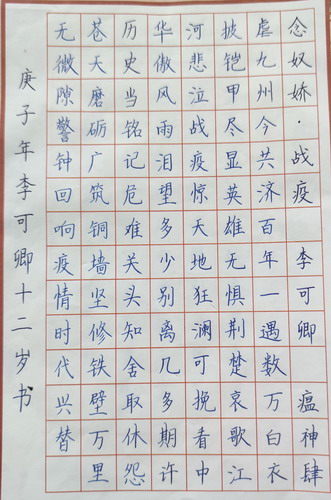 念奴娇·战疫 李可卿 瘟神肆
虐九州今共济百年一遇数万白衣
披铠甲尽显英雄无惧荆楚哀歌江
河悲泣战疫惊天地狂澜可挽看中
华傲风雨泪望多少别离几多期许
历史当铭记危难关头知舍取休怨
苍天磨砺广筑铜墙坚修铁壁万里
无微隙警钟回响疫情时代兴替
庚子年李可卿十二岁书